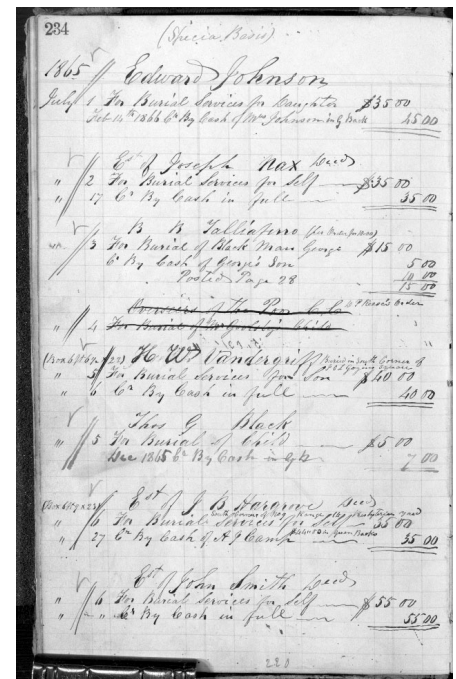 234
(Specia Basis)
1865 Edward Johnson
July 1 For Burial Services for Daughter $35 00
Feb 14th 1866 Cr By Cash of Mrs Johnson in G Back 45 00
Est of Joseph Nax Decd
" 2 For Burial Services for Self $35 00
" 17 Cr By Cash in full 35 00
B R Talliaferro
3 For Burial of Black Man George $15 00
Cr By Cash of George's Son 5 00
Posted Page 28 10 00
15 00
Overseers of The Poor Order
" 4 For Burial of Child
H W Vandergriff Buried in South Corner of
" 5 For Burial Services for Son $40 00
" 6 Cr By Cash in full 40 00
Thos G Black
" 5 For Burial of Child $5 00
Dec 1865 Cr By Cash in G B 7 00
Est of J B Hargrove Decd
" 6 For Burial Services for Self 35 00
" 27 Cr By Cash of A J Camp 35 00
Est of John Smith Decd
" 6 For Burial Services for Self $55 00
" " Cr By Cash in full 55 00
220